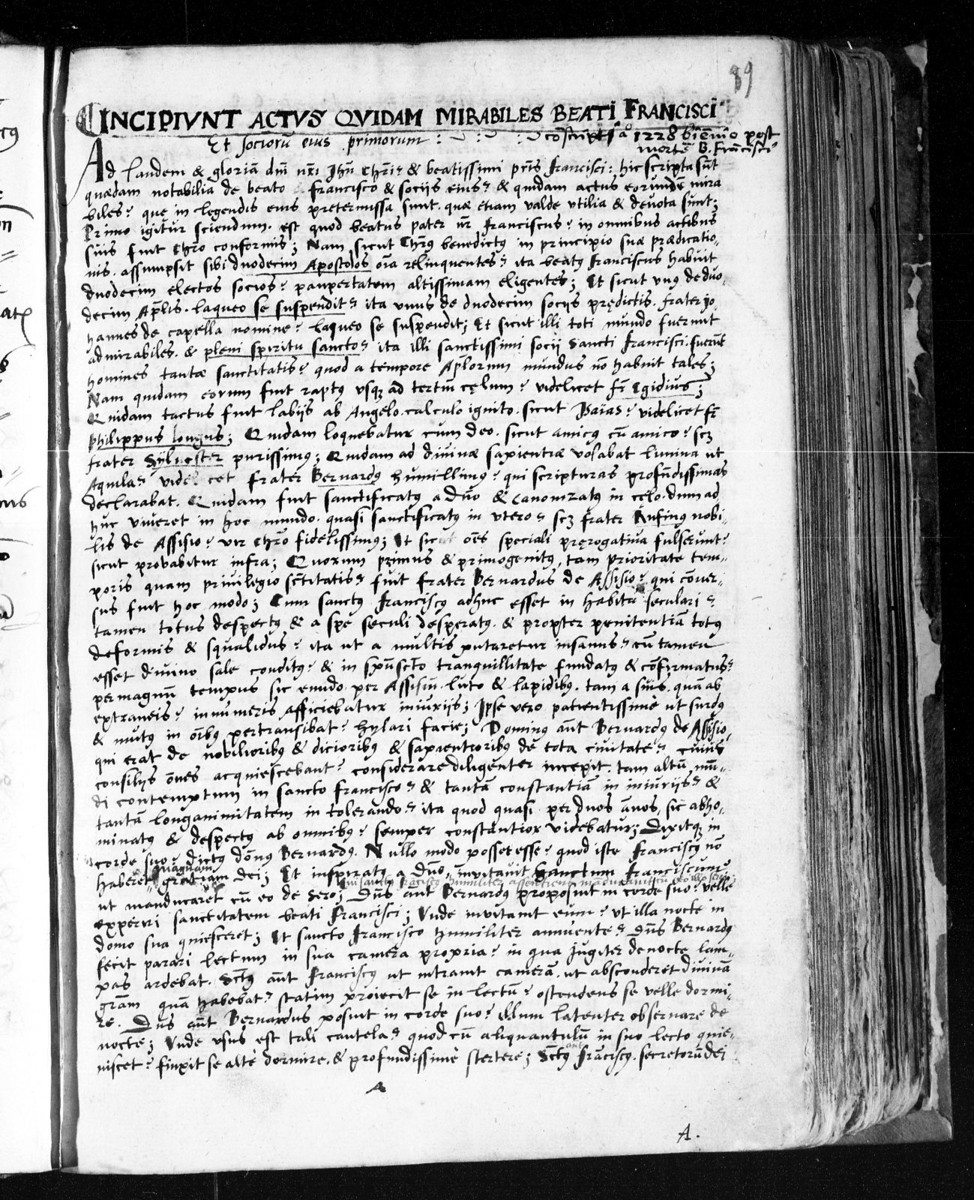 89
INCIPIVNT ACTVS QVIDAM MIRABILES BEATI FRANCISCI
Et sociorũ eius primorum : conscripti a 1228 biennio post
mortẽ B. Frãcisci
Ad laudem & gloriã dñi nr̃i Jhũ Chr̃i & beatissimi pr̃is francisci: hic scripta sũt
quædam notabilia de beato francisco & socijs eius & quidam actus eorundẽ mira
biles: que in legendis eius pretermissa sunt. quæ etiam valde utilia & deuota sũnt;
Primo igitur sciendum est quod beatus pater nr̃ Franciscus: in omnibus actibus
suis fuit Chr̃o conformis; Nam sicut Chr̃us benedictus in principio suæ prædicatio-
nis. assumpsit sibi duodecim Apostolos oĩa relinquentes: ita beatus franciscus habuit
duodecim electos socios: paupertatem altissimam eligentes; Et sicut unus de duo-
decim Apl̃is. laqueo se suspendit: ita unus de duodecim socijs prędictis. frater io
hannes de capella nomine: laqueo se suspendit; Et sicut illi toti mundo fuerunt
admirabiles. & pleni spiritu sancto: ita illi sanctissimi socij Sancti francisci. fuerũt
homines tantæ sanctitatis: quod a tempore Apl̃orum mundus nõ habuit tales;
Nam quidam eorum fuit raptus usq; ad tertiũ cęlum: videlicet fr̃ Egidius;
Quidam tactus fuit labijs ab Angelo. calculo ignito. sicut Isaias: videlicet fr̃
philippus longus; Quidam loquebatur cum deo. sicut amicus cũ amico: scz
frater Syluester purissimus; Quidam ad diuinæ sapientiæ volabat lumina ut
Aquila: videlicet frater Bernardus humillimus: qui scripturas profũdissimas
declarabat. Quidam fuit sanctificatus a dño & canonizatus in celo. dum ad
huc viueret in hoc mundo. quasi sanctificatus in utero: scz frater Rufinus nobi-
lis de Assisio: vir Chr̃o fidelissimus; Et sicut oẽs speciali prærogatiua fulserunt:
sicut probabitur infra; Quorum primus & primogenitus, tam prioritate tem-
poris quam priuilegio sc̃titatis: fuit frater Bernardus de Assisio: qui cõuer-
sus fuit hoc modo; Cum sanctus franciscus adhuc esset in habitu seculari:
tamen totus despectus & a spe seculi desperatus. & propter penitentiã totus
deformis & squalidus: ita ut a multis putaretur insanus: cũ tamen
esset diuino sale conditus: & in sp̃usc̃to tranquillitate fundatus & cõfirmatus:
per magnũ tempus sic eundo per Assisiũ. luto & lapidibus. tam a suis. quã ab
extraneis: innumeris afficiebatur iniurijs; Ipse vero patientissime ut surdus
& mutus in oĩbus pertransibat: hylari facie; Dominus aũt Bernardus de Assisio
qui erat de nobilioribus & dicioribus & sapientioribus de tota ciuitate: cuius
consilijs oẽs acquiescebant: considerare diligenter incepit. tam altũ mũ-
di contemptum in sancto francisco: & tantã constantiã in iniurijs: &
tantã longanimitatem in tolerando: ita quod quasi per duos ãnos, sic abho-
minatus & despectus ab omnibus: semper constantior videbatur; Dixitq; in
corde suo: dictus dõnus Bernardus. Nullo modo posset esse: quod iste franciscus nõ
haberet magnam gratiam dei; Et inspiratus a dño inuitauit Sanctum franciscum
ut manducaret cũ eo de sero; Dñs aũt Bernardus proposuit in corde suo: velle
experiri sanctitatem beati francisci; Vnde inuitauit eum: ut illa nocte in
domo sua quiesceret; Et sancto francisco humiliter annuente: dñs Bernardus
fecit parari lectum in sua camera propria: in qua jugiter de nocte lam-
pas ardebat. Sc̃tus aũt franciscus ut intrauit camerã. ut absconderet diuinã
gr̃am quã habebat: statim proiecit se in lectũ: ostendens se velle dormi-
re. Dñs aũt Bernardus posuit in corde suo: illum latenter obseruare de
nocte; Vnde usus est tali cautela: quod cũ aliquantulũ in suo lecto quie-
uisset: finxit se alte dormire. & profundissime stertere; Sc̃tus aũt frãciscus. secretorũ dei
A.